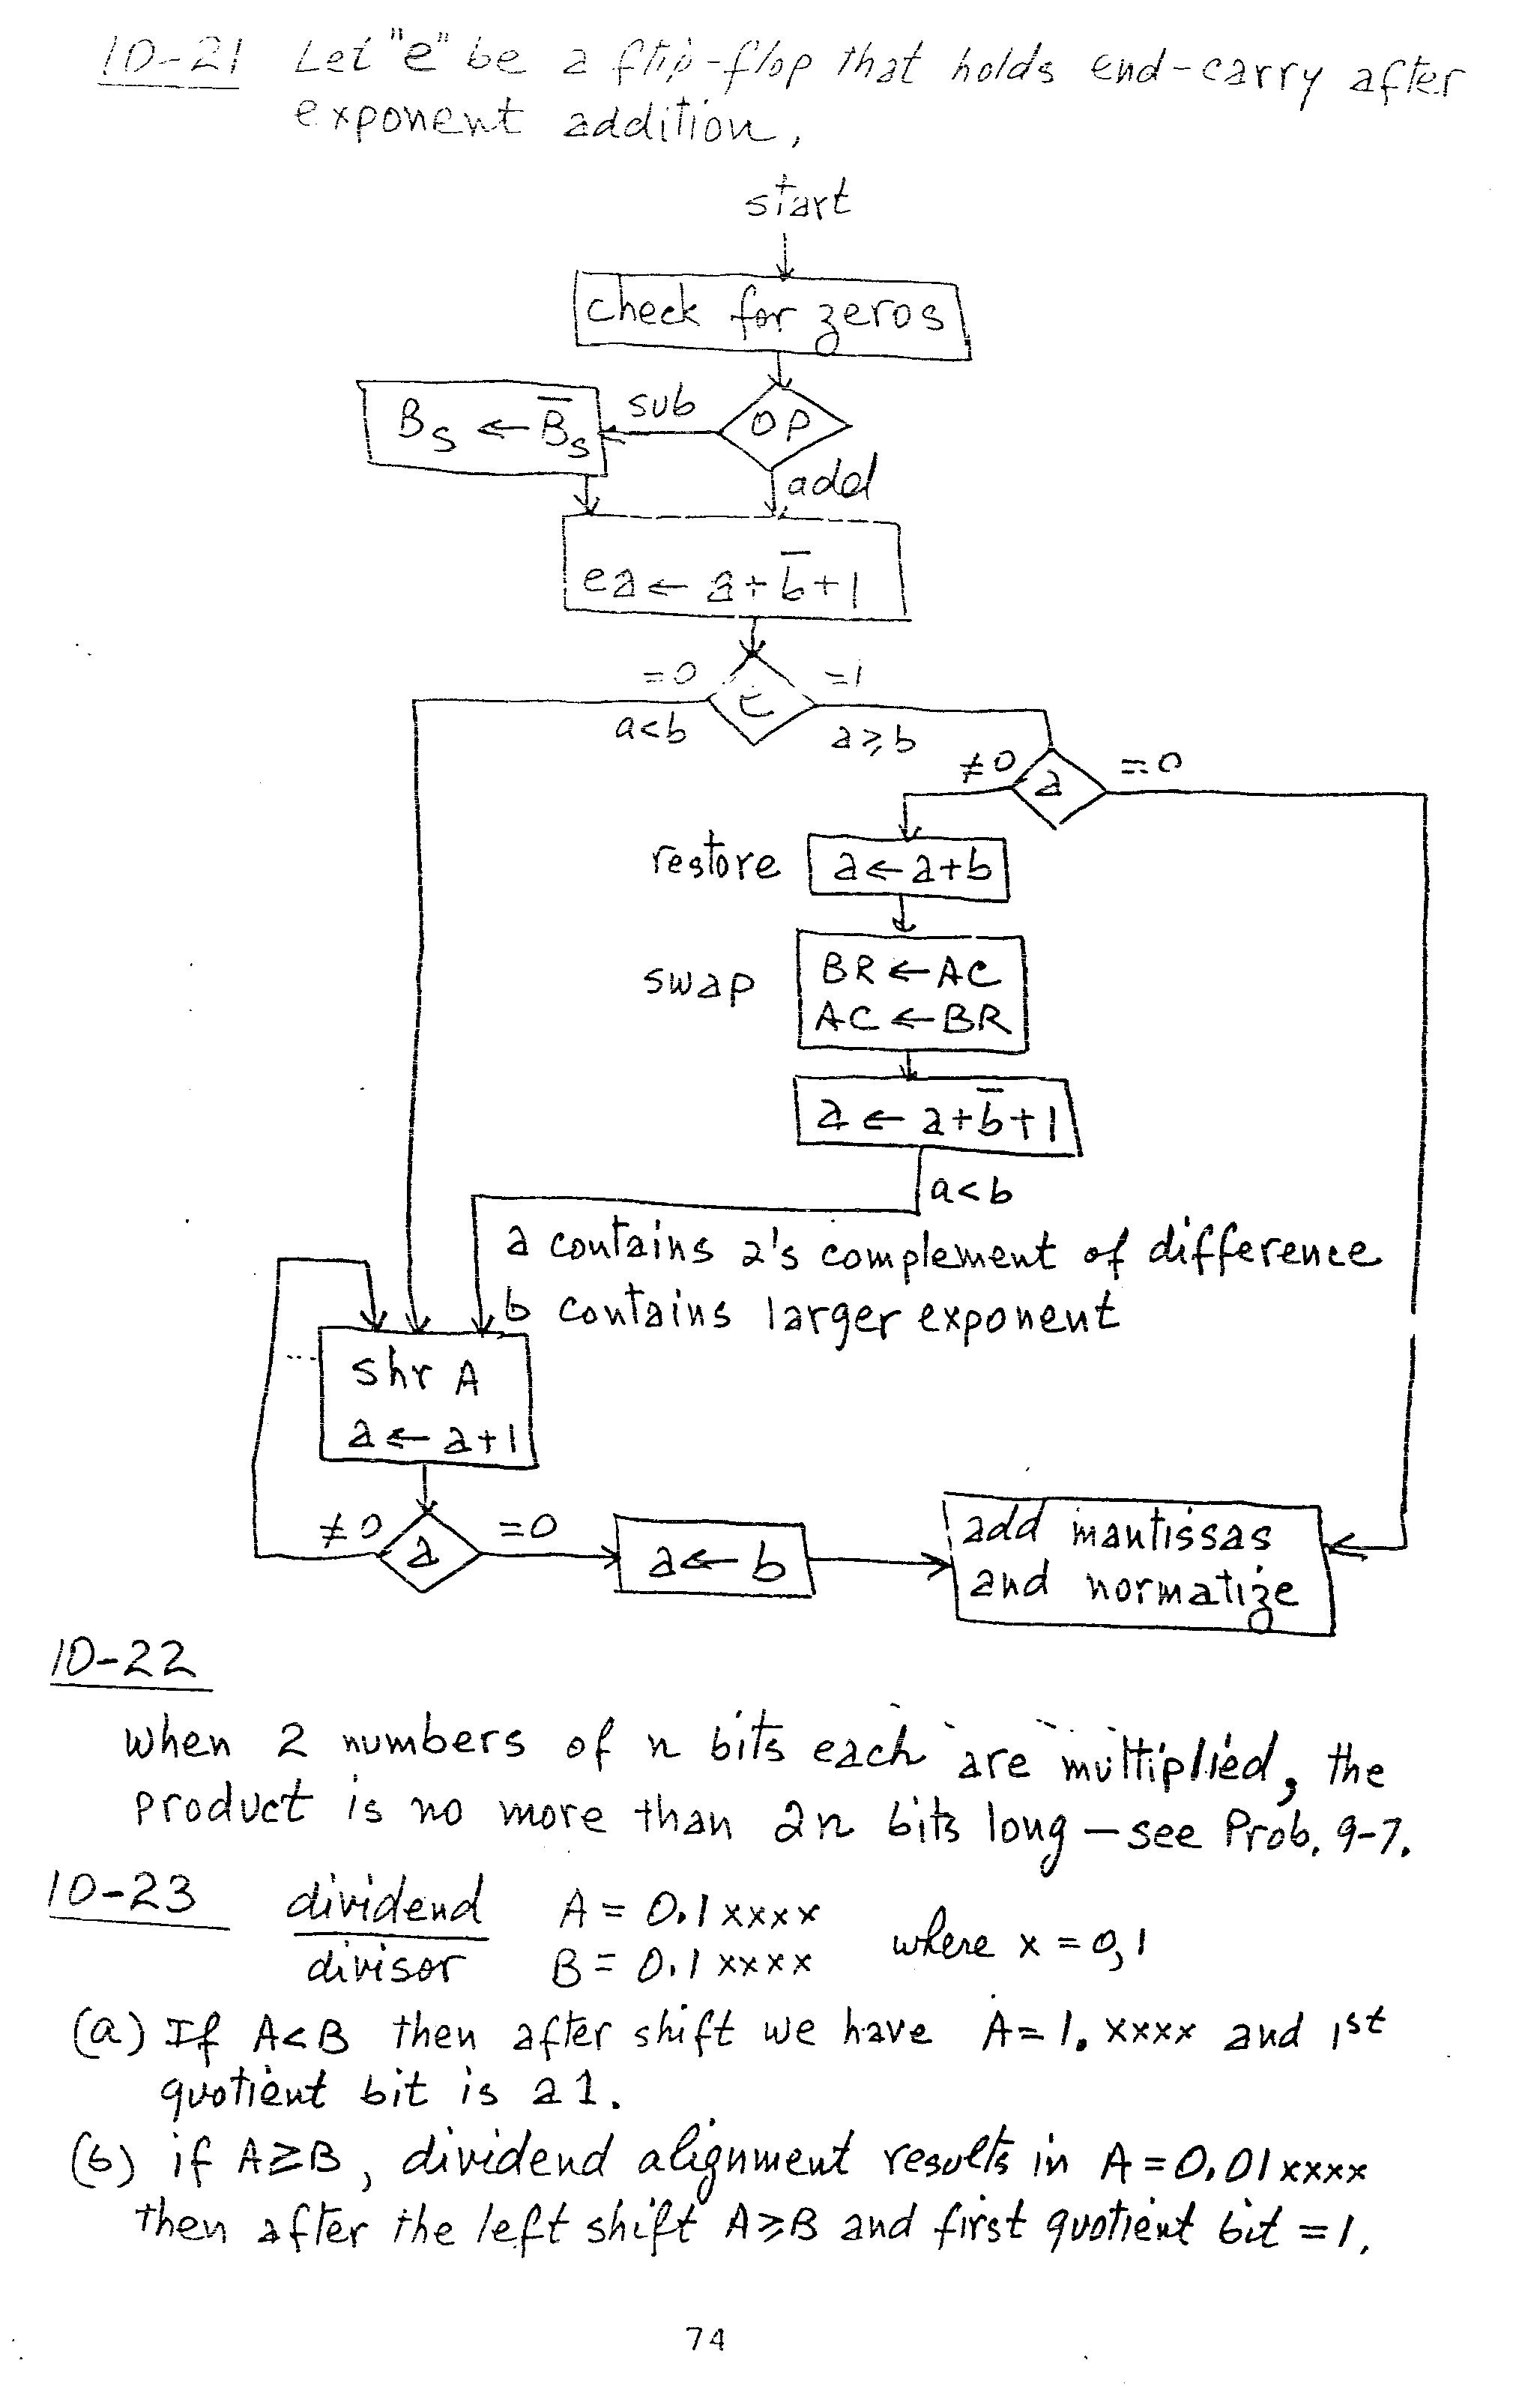 10-21 Let "e" be a flip-flop that holds end-carry after
exponent addition,
start
check for zeros
OP
sub
B̅s
Bs ← B̅s
add
ea ← a + b̅ + 1
e
=0
a<b
=1
a≥b
a
≠0
=0
restore
a ← a+b
swap
BR ← AC
AC ← BR
a ← a+b̅+1
a<b
a contains 2's complement of difference
b contains larger exponent
Shr A
a ← a+1
a
≠0
=0
a ← b
add mantissas
and normalize
10-22
When 2 numbers of n bits each are multiplied, the
product is no more than 2n bits long — see Prob. 9-7.
10-23 dividend A = 0.1xxxx where x = 0,1
divisor B = 0.1xxxx
(a) If A<B then after shift we have A = 1.xxxx and 1st
quotient bit is a 1.
(b) if A≥B, dividend alignment results in A = 0.01xxxx
then after the left shift A≥B and first quotient bit = 1.
74